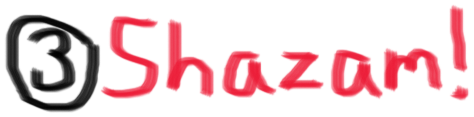 ③Shazam!